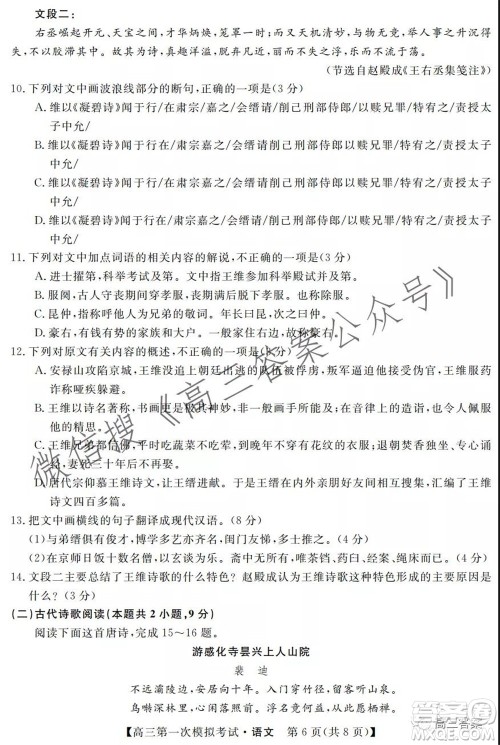 文段二:
右丞崛起开元、天宝之间,才华炳焕,笼罩一时;而又天机清妙,与物无竞,举人事之升沉得失,
不以胶滞其中。故其为诗,真趣洋溢,脱弃凡近,丽而不失之浮,乐而不流于荡。
(节选自赵殿成《王右丞集笺注》)
10. 下列对文中画波浪线部分的断句,正确的一项是(3分)
A. 维以《凝碧诗》闻于行/在肃宗嘉之/会缙请/削己刑部侍郎/以赎兄罪/特宥之/责授太子
中允/
B. 维以《凝碧诗》闻于行在/肃宗嘉之/会缙请削己刑部侍郎/以赎兄罪/特宥/之责授太子
中允/
C. 维以《凝碧诗》闻于行在/肃宗嘉之/会缙请削己刑部侍郎/以赎兄罪/特宥之/责授太子
中允/
D. 维以《凝碧诗》闻于行/在肃宗嘉之/会缙请/削己刑部侍郎/以赎兄罪/特宥/之责授太子
中允/
11. 下列对文中加点词语的相关内容的解说,不正确的一项是(3分)
A. 进士擢第,科举考试及第。文中指王维参加科举殿试并及第。
B. 服阕,古人守丧期内穿孝服,丧期满后脱下孝服。也称除服。
C. 昆仲,指称呼他人为兄弟的敬词。文中指王维、王缙兄弟。
D. 豪右,右,就是大,文中指豪族大户,故称豪右。
12. 下列对原文有关内容的概述,不正确的一项是(3分)
A. 安禄山攻陷京城,王维没追上朝廷出逃的队伍被俘虏,叛军逼迫他接受伪职,王维服药
诈称哑疾躲避。
B. 王维以诗名著称,书画更是极其美妙,非一般画手所能及;在音律上的造诣,也令人佩服
他的精思。
C. 王维兄弟都信奉佛教,平时吃蔬菜不吃荤,到晚年不穿有花纹的衣服;退朝焚香独坐,诵
经,妻亡三十年后不再娶。
D. 唐代宗仰慕王维诗文,请王缙进献,王缙从王维的内外亲朋处搜集,汇编了王维
诗文四百多篇。
13. 把文中画横线的句子翻译成现代汉语。(8分)
(1)与弟缙俱有俊才,博学多艺亦齐名,闺门友悌,多士推之。
(2)在京师日饭十数名僧,以玄谈为乐。斋中无所有,唯茶铛、药臼、经案、绳床而已。
14. 文段二主要总结了王维诗歌的什么特色?赵殿成认为王维诗歌的主要特色的原因是
什么?(3分)
(二)古代诗歌阅读(本题共2小题,9分)
阅读下面这首唐诗,完成15~16题。
游感化寺昙兴上人山院
裴 迪
不远灞陵边,安居向十年。入门穿竹径,留客听山泉。
鸟啭深林里,心闲落照前。浮名竟何益,从此愿栖禅。
高三第一次模拟考试·语文 第6页(共8页)
微信搜《高三答案公众号》
高三答案